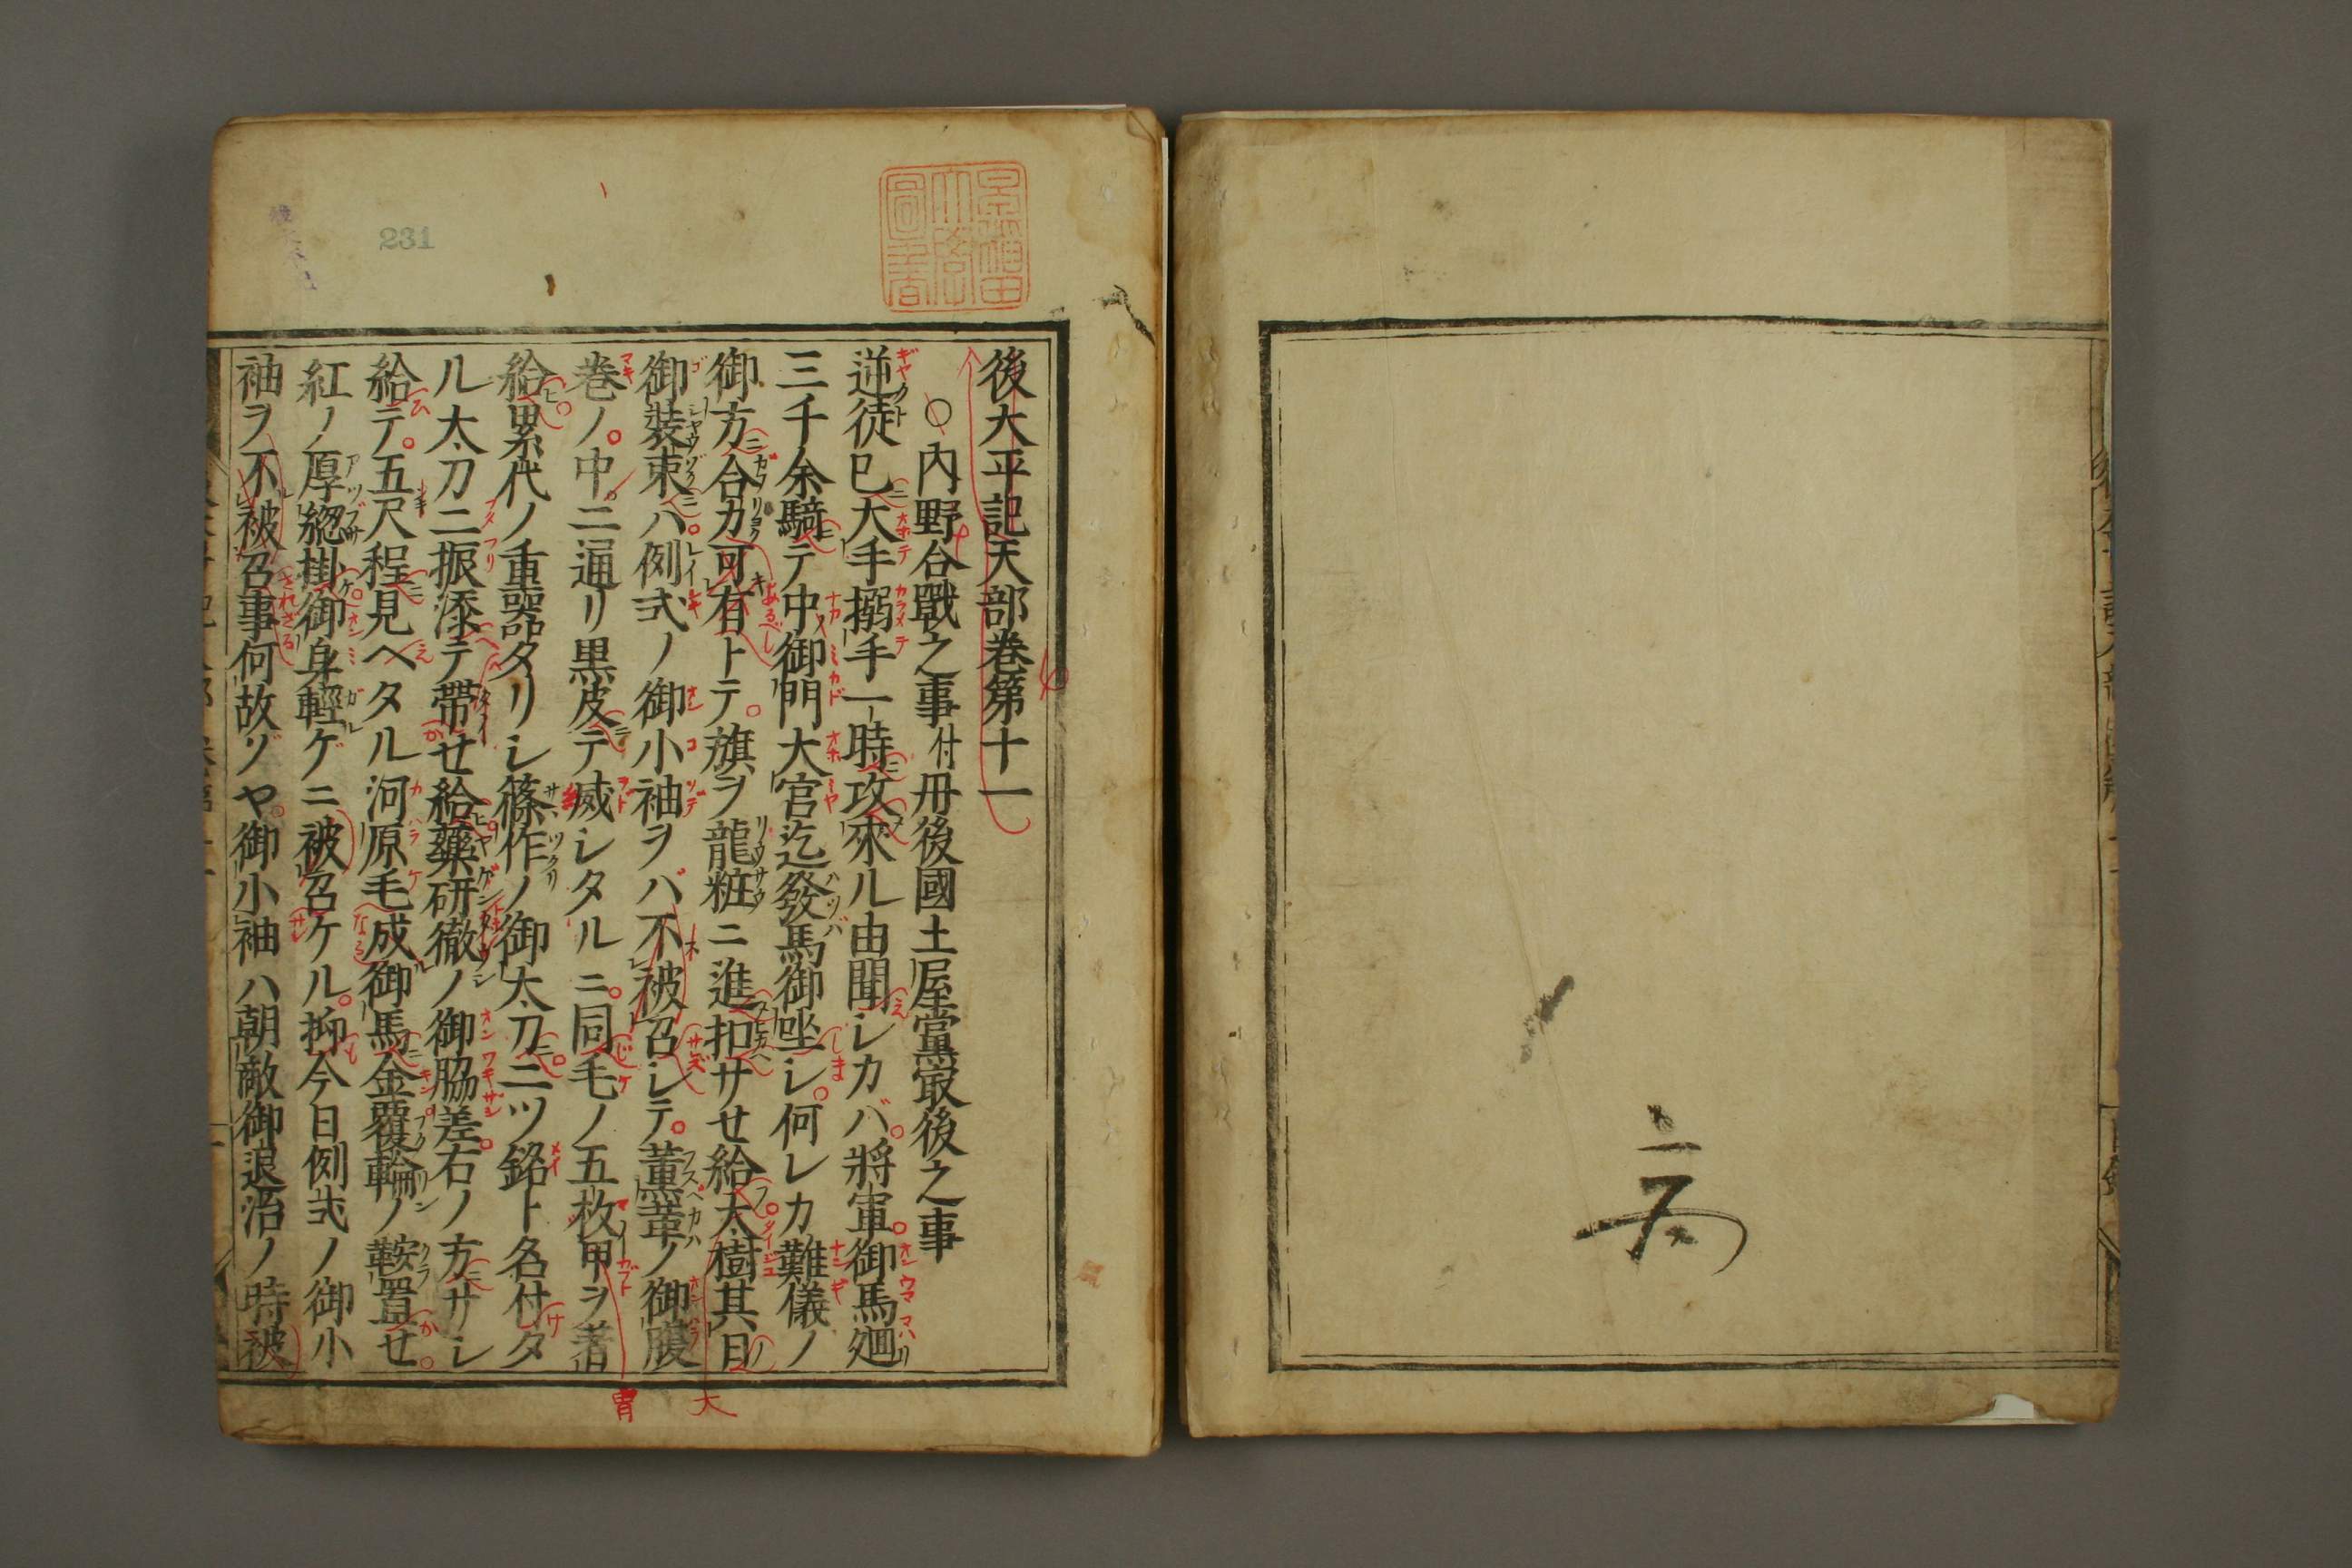 後太平記天部巻第十一
○內野合戰之事付丹後國土屋黨冣後之事
逆徒已大手搦手一時攻來ル由聞シカバ將軍御馬廻
三千余騎テ中御門大宮迄發馬御坐シ何レカ難儀ノ
御方合力可有トテ旗ヲ龍粧ニ進扣サセ給太樹其日
御裝束ハ例弐ノ御小袖ヲバ不被召シテ薫韋ノ御腹
巻ノ中二通リ黒皮テ威シタルニ同毛ノ五枚甲ヲ著
給累代ノ重器タリシ篠作ノ御太刀二ツ銘ト名付タ
ル太刀二振添テ帶セ給藥研徹ノ御脇差右ノ方サシ
給テ五尺程見ヘタル河原毛成御馬金覆輪ノ鞍置せ
紅ノ厚緫掛御身輕ゲニ被召ケル抑今日例弐ノ御小
袖ヲ不被召事何故ゾヤ御小袖ハ朝敵御退治ノ時被
胄
大
231